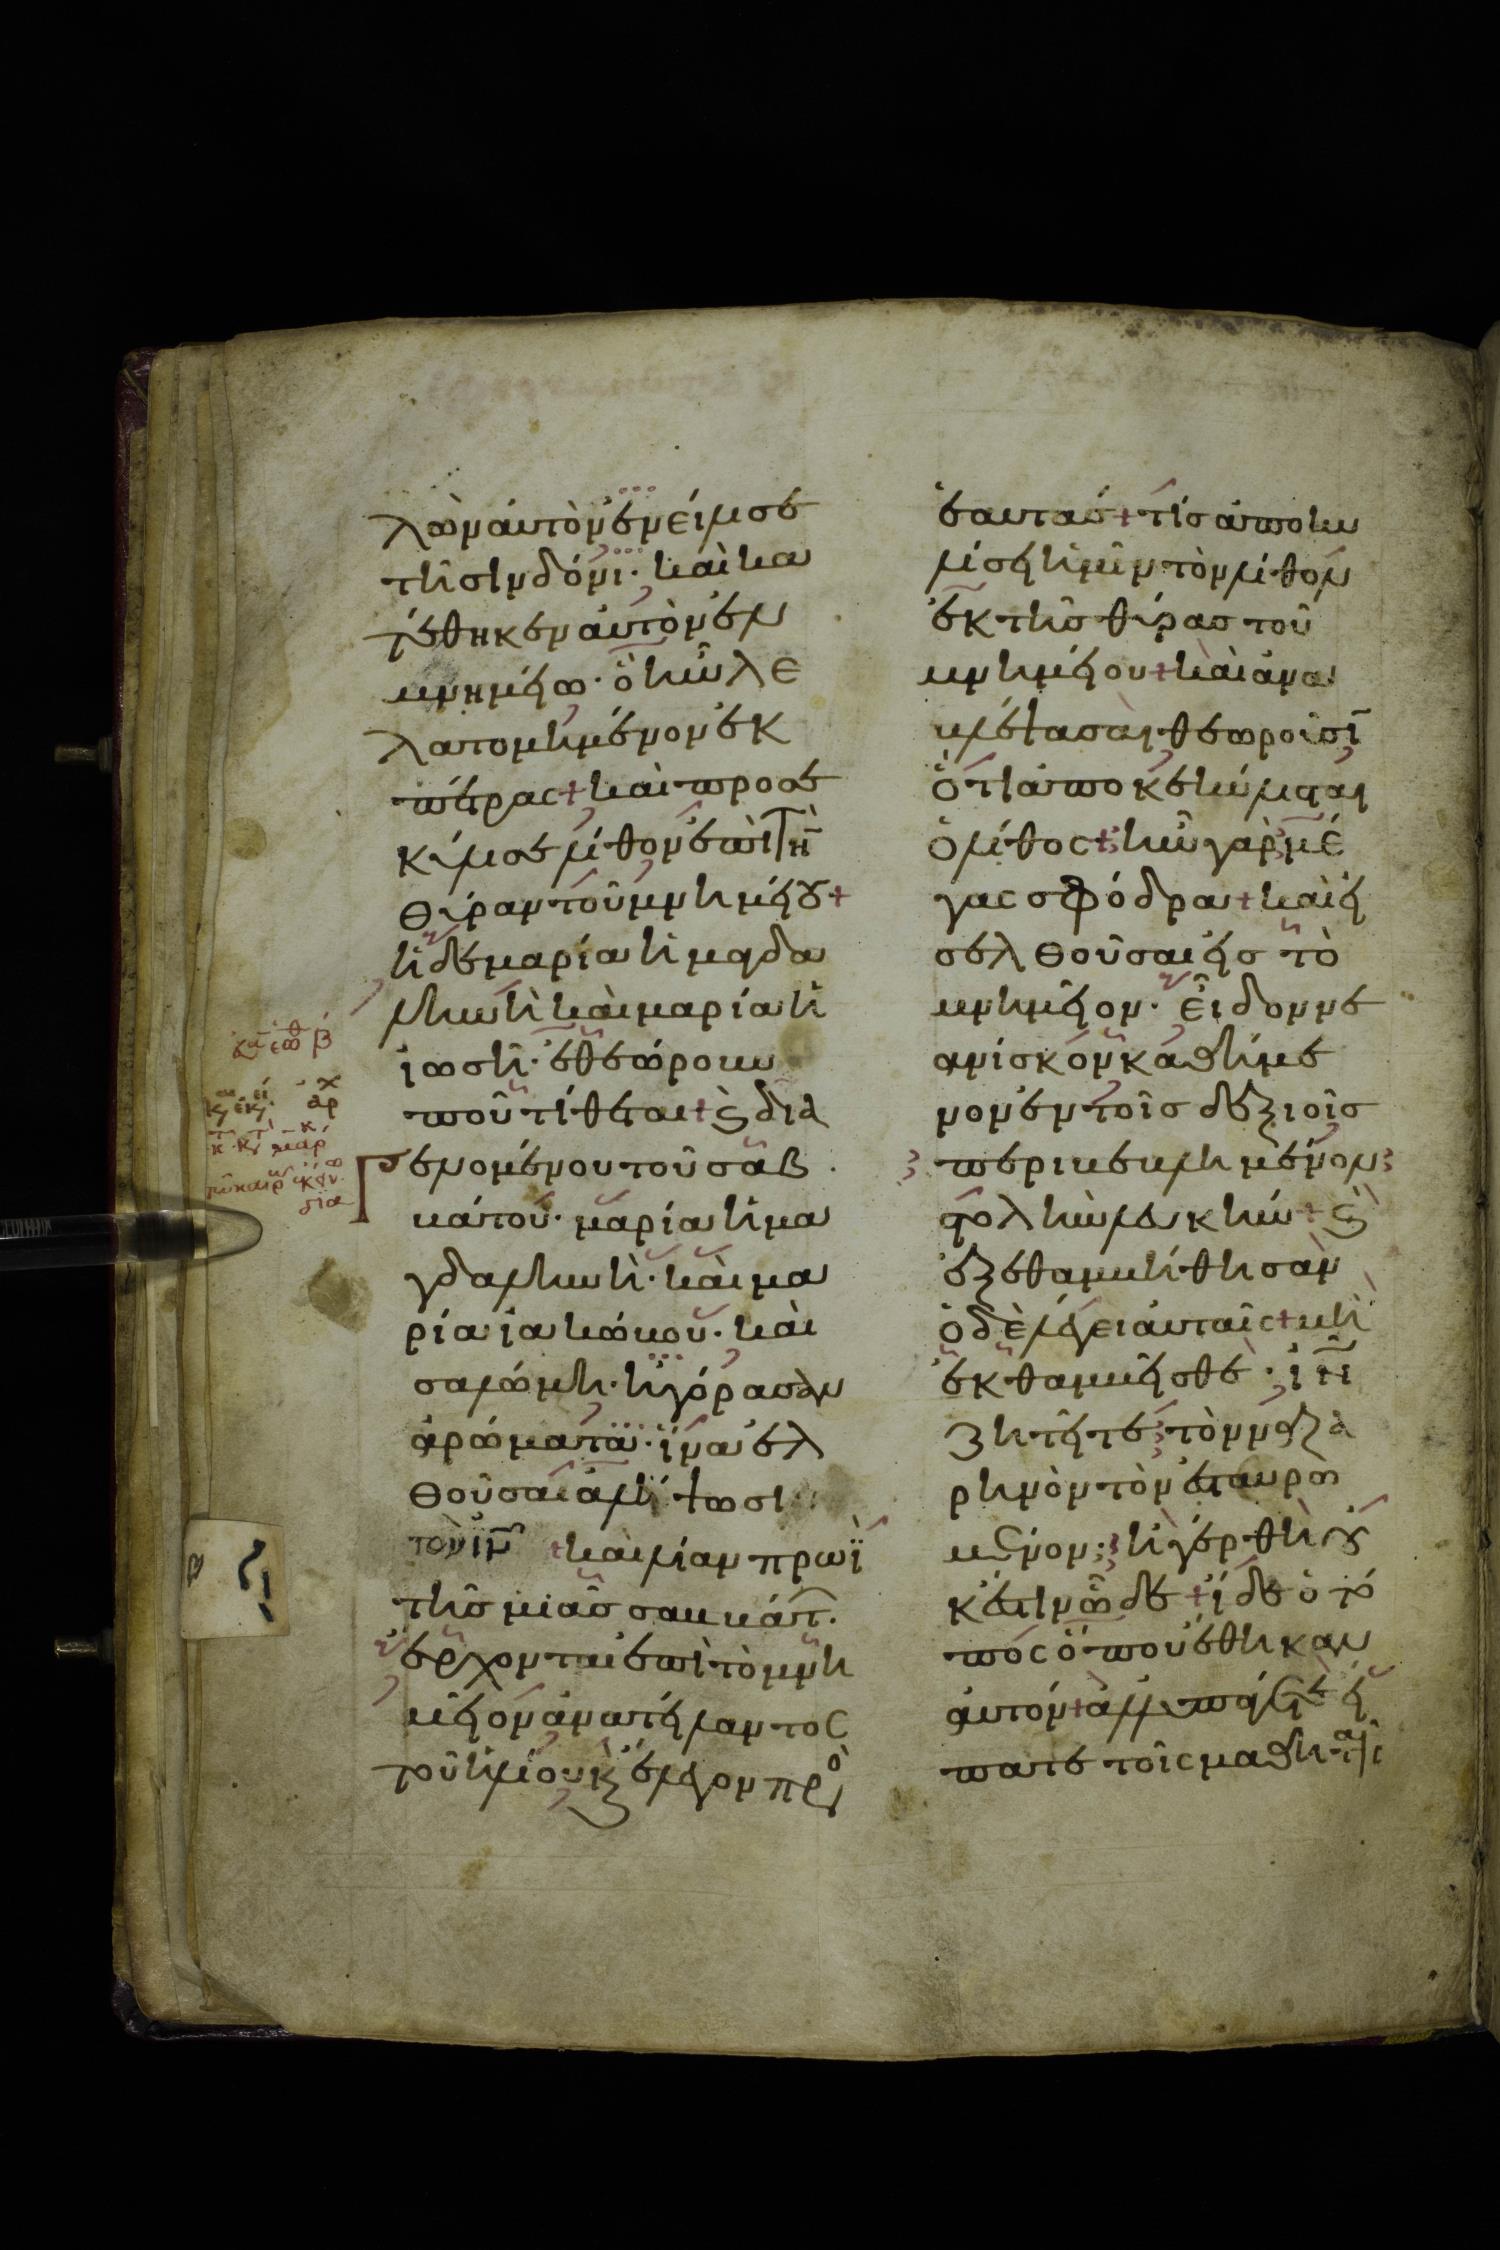 λὼν αὐτὸν ἐνείλισε
τῇ σινδόνι· καὶ κα
τέθηκεν αὐτὸν ἐν
μνημείω· ὃ ἦν λε
λατομημένον ἐκ
πέτρας + καὶ προσε
κύλισε λίθον ἐπὶ τὴ̄
θύραν τοῦ μνημείου +
ἡ δε μαρία ἡ μαγδα
ληνὴ καὶ μαρία ἡ
ἰωσῆ· ἐθεώρουν
ποῦ τίθεται + ϗ δια
γενομένου τοῦ σαβ
βάτου· μαρία ἡ μα
γδαληνὴ· καὶ μα
ρία ἰακώβου· καὶ
σαλώμη· ἠγόρασαν
ἀρώματα· ἵνα ἐλ
θοῦσαι ἀλείψωσι
τὸν ἰν̄ + καὶ λίαν πρωῒ
τῆς μιᾶς σαββάτ·
ἔρχονται ἐπὶ τὸ μνη
μεῖον ἀνατείλαντος
τοῦ ἡλίου ϗ ἔλεγον προ
ἑαυτάς + τίς ἀποκυ
λίσει ἡμῖν τὸν λίθον
ἐκ τῆς θύρας τοῦ
μνημείου + καὶ ἀνα
βλέψασαι θεωροῦσῑ
ὅτι ἀποκεκύλισται
ὁ λίθος + ἦν γὰρ μέ
γας σφόδρα + καὶ εἰ
σελθοῦσαι εἰς τὸ
μνημεῖον· εἶδον νε
ανίσκον καθήμε
νον ἐν τοῖς δεξιοῖς
περιβεβλημένον
στολὴν λευκήν + ϗ
ἐξεθαμβήθησαν
ὁ δὲ λέγει αὐταῖς + μὴ
ἐκθαμβεῖσθε· ἰν̄
ζητεῖτε τὸν ναζα
ρηνὸν τὸν ἐσταυρω
μένον; ἠγέρθη οὐ
κ ἔστιν ὧδε + ἴδε ὁ τό
πος ὅπου ἔθηκαν
αὐτόν + ἀλλ ὑπάγετε εἴ
πατε τοῖς μαθηταῖ